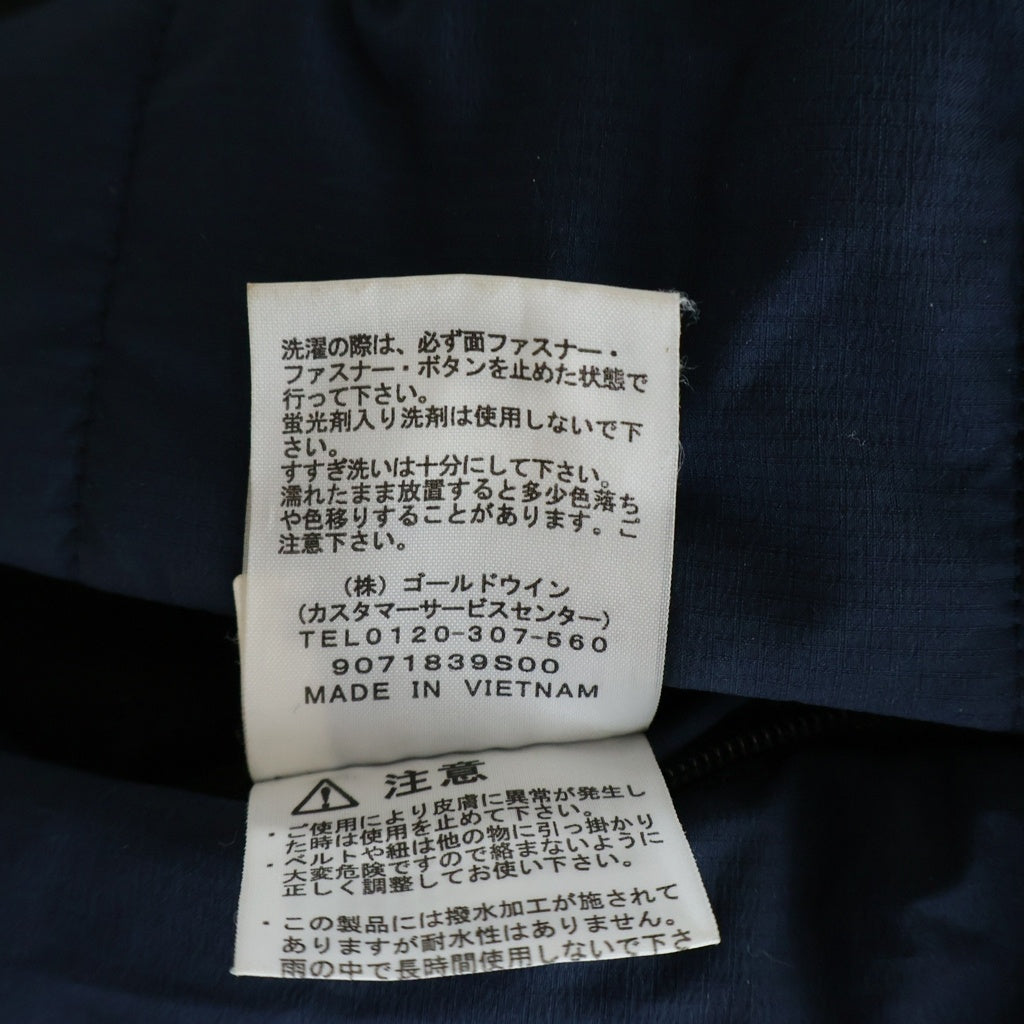 洗濯の際は、必ず面ファスナー・
ファスナー・ボタンを止めた状態で
行って下さい。
蛍光剤入り洗剤は使用しないで下
さい。
すすぎ洗いは十分にして下さい。
濡れたまま放置すると多少色落ち
や色移りすることがあります。ご
注意下さい。
(株)ゴールドウイン
(カスタマーサービスセンター)
TEL0120-307-560
9071839S00
MADE IN VIETNAM
注意
・ご使用により皮膚に異常が発生し
た時は使用を止めて下さい。
・ベルトや紐は他の物に引っ掛かり
大変危険ですので絡まないように
正しく調整してお使い下さい。
・この製品には撥水加工が施されて
ありますが耐水性はありません。
雨の中で長時間使用しないで下さ